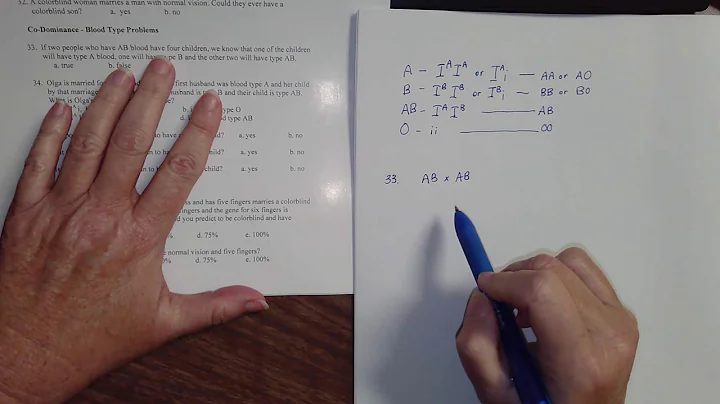 32. A colorblind woman marries a man with normal vision. Could they ever have a
colorblind son? a. yes b. no
Co-Dominance - Blood Type Problems
33. If two people who have AB blood have four children, we know that one of the children
will have type A blood, one will have type B and the other two will have AB.
a. true b. false
34. Olga is married fo first husband was blood type A and her child
by that marriage husband is B and their child is type AB.
What is Olga's e?
b. type O
d. d type AB
to have d? a. yes b. no
n to ha a. yes b. no
n to child? a. yes b. no
ss and has five fingers marries a colorblind
ingers and the gene for six fingers is
d you predict to be colorblind and have
d. 75% e. 100%
s normal vision and five fingers?
0% d. 75% e. 100%
A - IᴬIᴬ or Iᴬi — AA or AO
B - IᴮIᴮ or Iᴮi — BB or BO
AB - IᴬIᴮ — AB
O - ii — OO
33. AB x AB